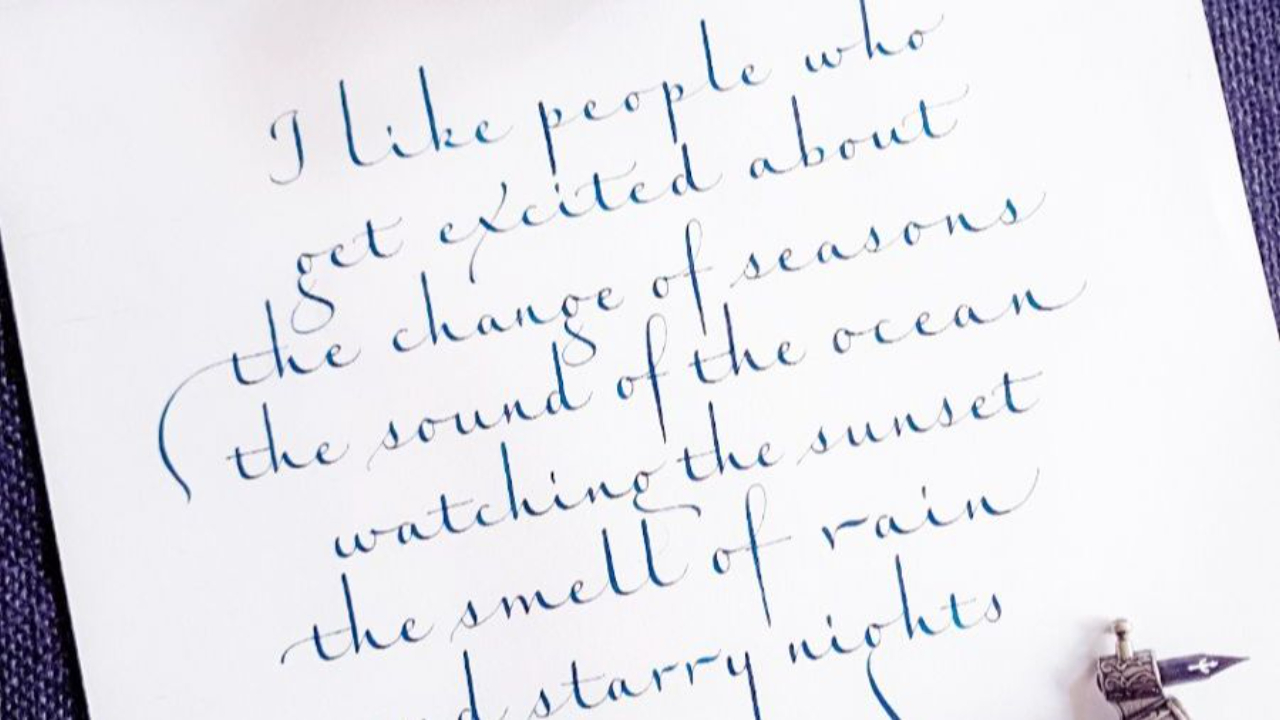 I like people who
get excited about
the change of seasons
the sound of the ocean
watching the sunset
the smell of rain
starry nights